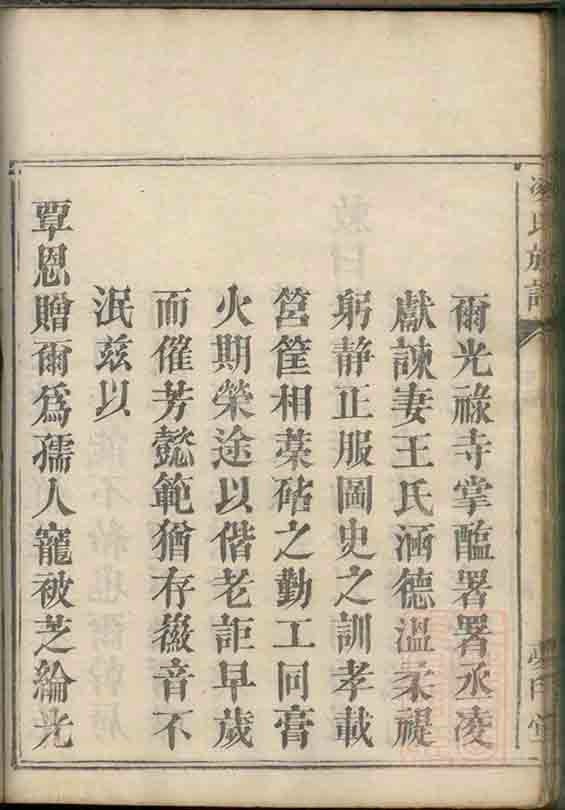 爾光祿寺掌醢署署丞凌
獻諫妻王氏涵德溫柔禔
躬靜正服圖史之訓孝載
筥筐相藁砧之勤工同膏
火期榮途以偕老詎早歲
而傕芳懿範猶存徽音不
泯茲以
覃恩贈爾為孺人寵被芝綸光
凌氏族譜